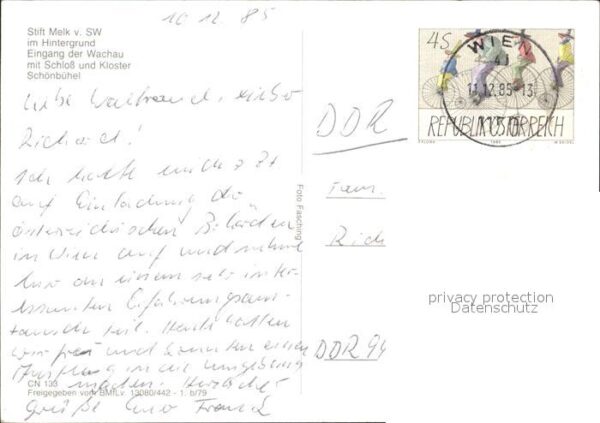 10.12.85
Stift Melk v. SW
im Hintergrund
Eingang der Wachau
mit Schloß und Kloster
Schönbühel
Liebe Waltraud, lieber
Richard!
Ich halte mich z. Zt.
auf Einladung der
österreichischen Behörden
in Wien auf und nehme
hier an einem sehr inter-
essanten Erfahrungsaus-
tausch teil. Heute hatten
wir frei und konnten einen
Ausflug in die Umgebung
machen. Herzliche
Grüße Euer
CN 133
Freigegeben vom BMfLv. 13080/442 - 1. b/79
Foto Fasching
4S
WIEN
11.12.85-13
REPUBLIK ÖSTERREICH
1985
DDR
Fam.
Rich
DDR 94
privacy protection
Datenschutz